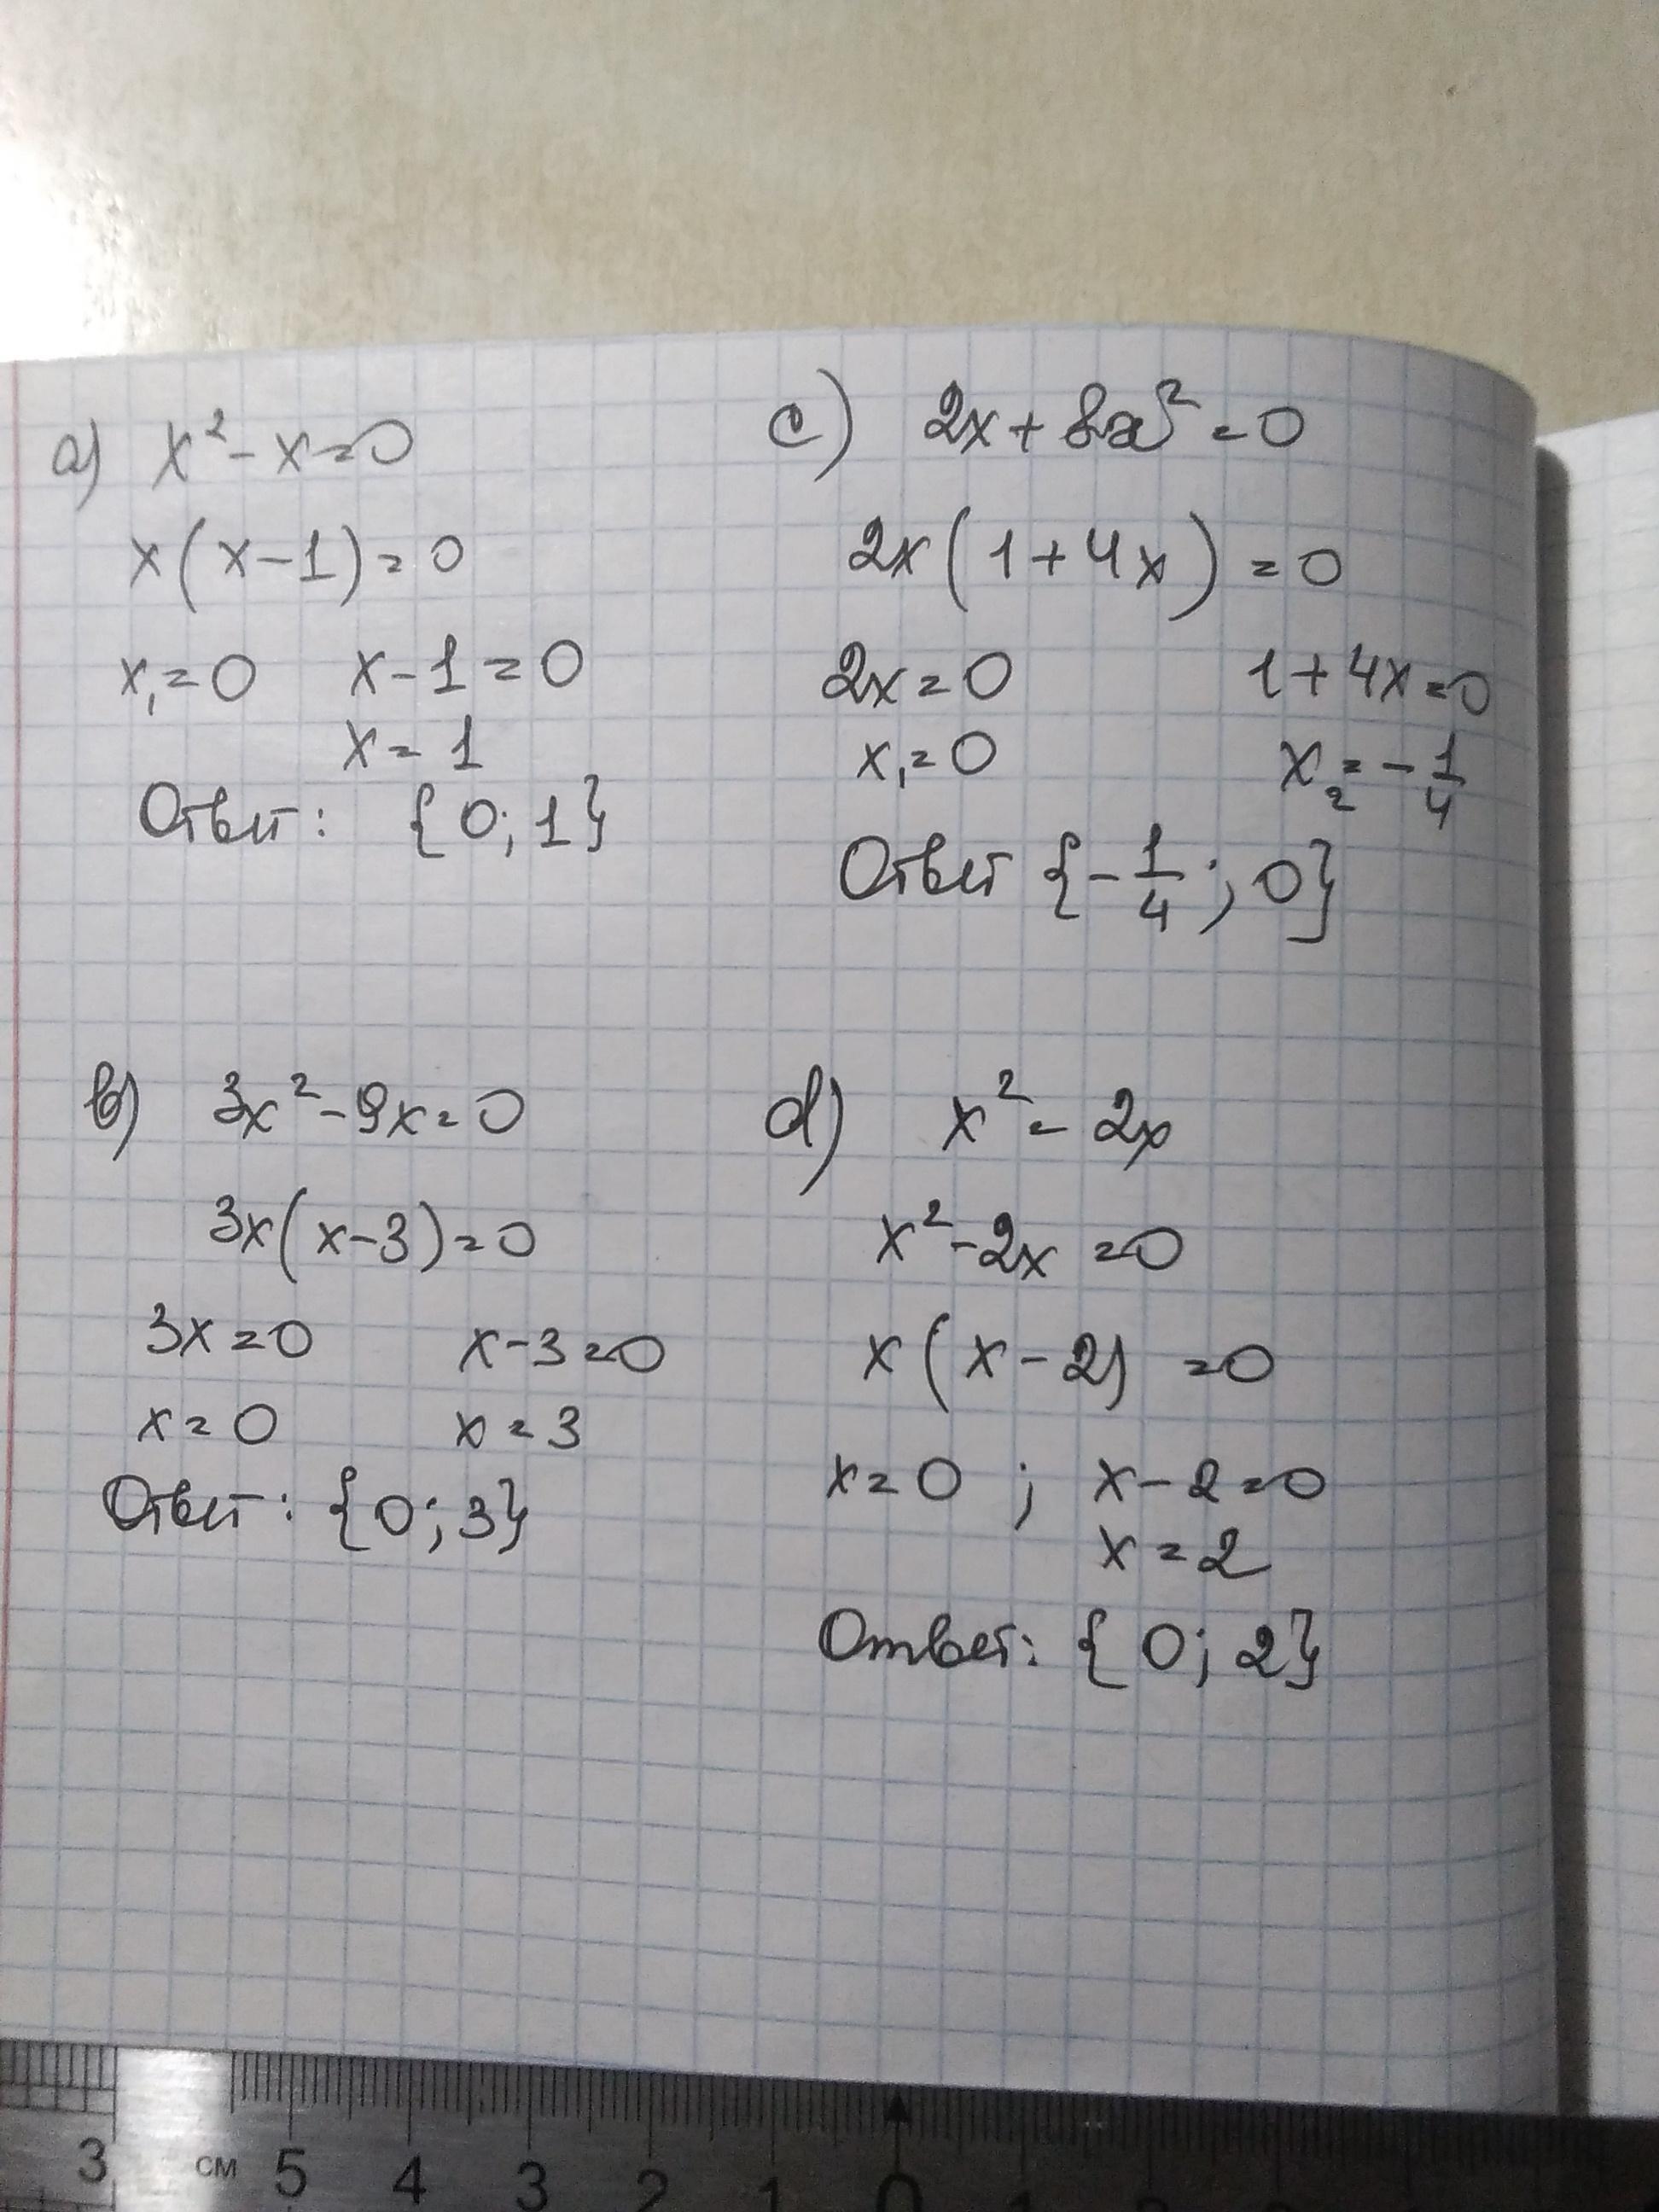 a) x² - x = 0
x(x - 1) = 0
x₁ = 0 x - 1 = 0
x = 1
Ответ: {0; 1}
c) 2x + 8x² = 0
2x(1 + 4x) = 0
2x = 0 1 + 4x = 0
x₁ = 0 x₂ = -1/4
Ответ {-1/4; 0}
b) 3x² - 9x = 0
3x(x - 3) = 0
3x = 0 x - 3 = 0
x = 0 x = 3
Ответ: {0; 3}
d) x² = 2x
x² - 2x = 0
x(x - 2) = 0
x = 0 ; x - 2 = 0
x = 2
Ответ: {0; 2}
3 см 5 4 3 2 1 0 1